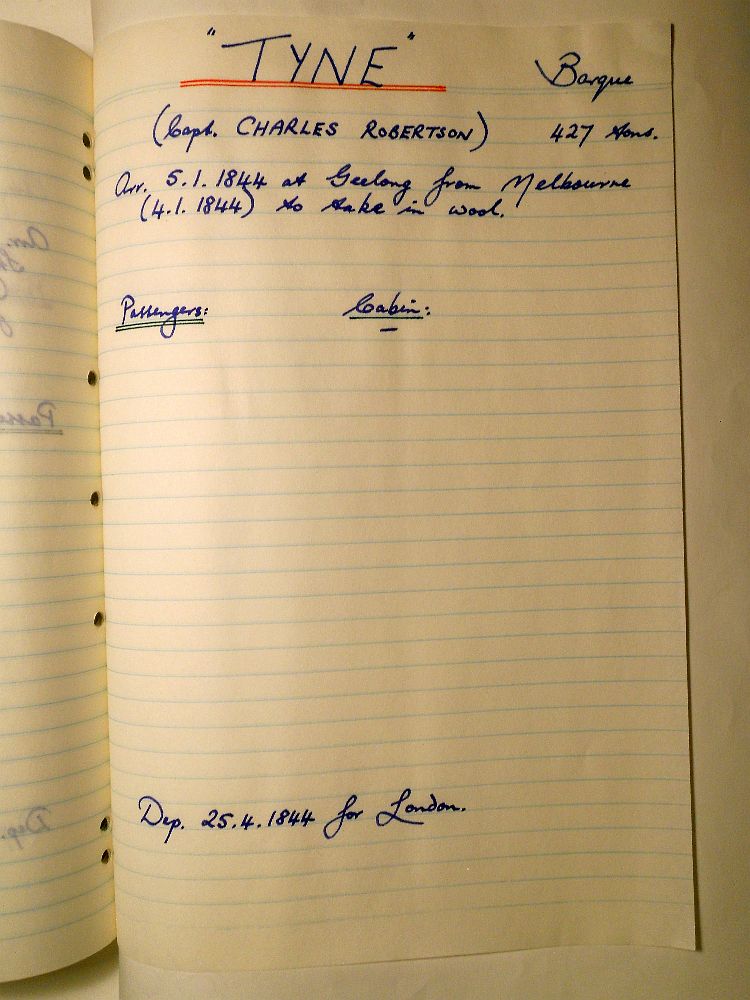 "TYNE" Barque
(Capt. CHARLES ROBERTSON) 427 tons.
Arr. 5.1.1844 at Geelong from Melbourne
(4.1.1844) to take in wool.
Passengers: Cabin:
–
Dep. 25.4.1844 for London.